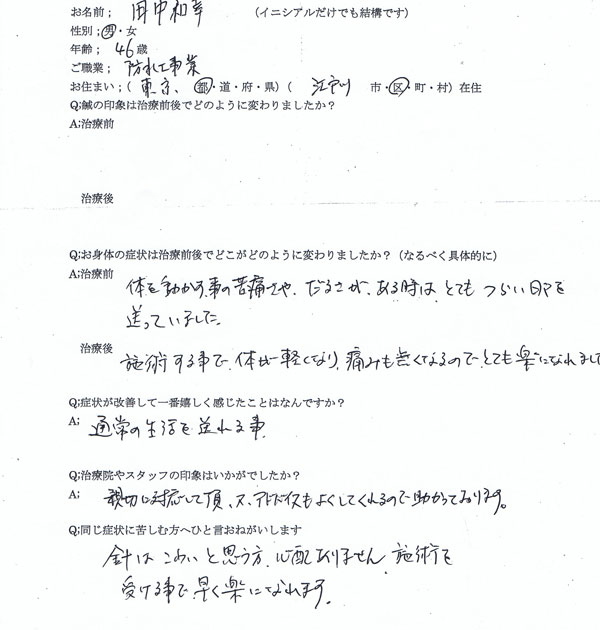 お名前； 田中和幸 （イニシアルだけでも結構です）
性別；男・女
年齢； 46歳
ご職業； 防水工事業
お住まい；（ 東京、 都・道・府・県）（ 江戸川 市・区・町・村）在住
Q;鍼の印象は治療前後でどのように変わりましたか？
A;治療前
治療後
Q;お身体の症状は治療前後でどこがどのように変わりましたか？（なるべく具体的に）
A;治療前
体を動かす事の苦痛さや、だるさが、ある時は、とても つらい日々を
送っていました。
治療後 施術する事で、体が軽くなり、痛みも無くなるので、とても楽になれまし
Q;症状が改善して一番嬉しく感じたことはなんですか？
A; 通常の生活を送れる事。
Q;治療院やスタッフの印象はいかがでしたか？
A; 親切に対応して頂、又、アドバイスもよくしてくれるので助かっております。
Q;同じ症状に苦しむ方へひと言おねがいします
針は こわいと思う方、心配ありません。施術を
受ける事で、早く楽になれます。